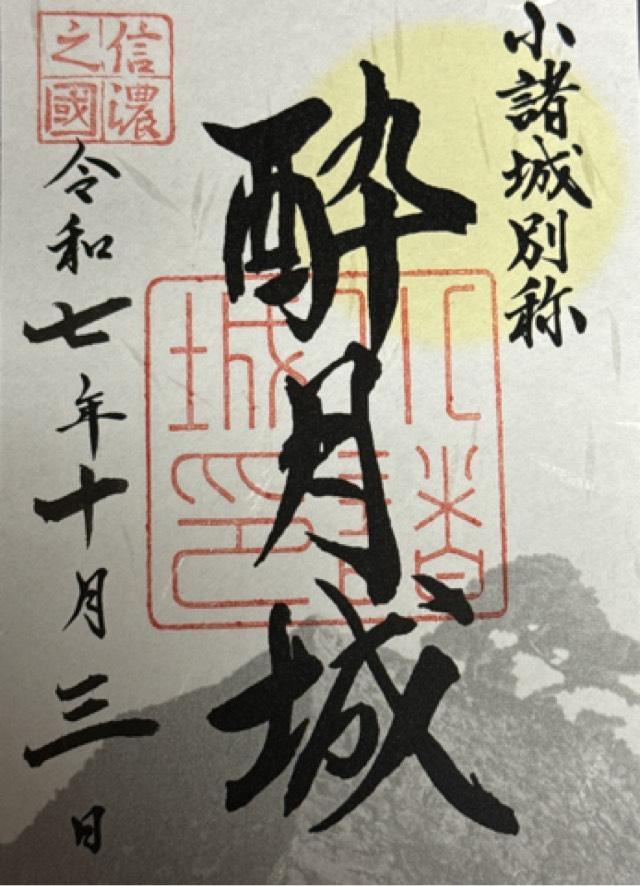 小諸城別称
酔月城
信濃
之國
令和七年十月三日
小諸
城印